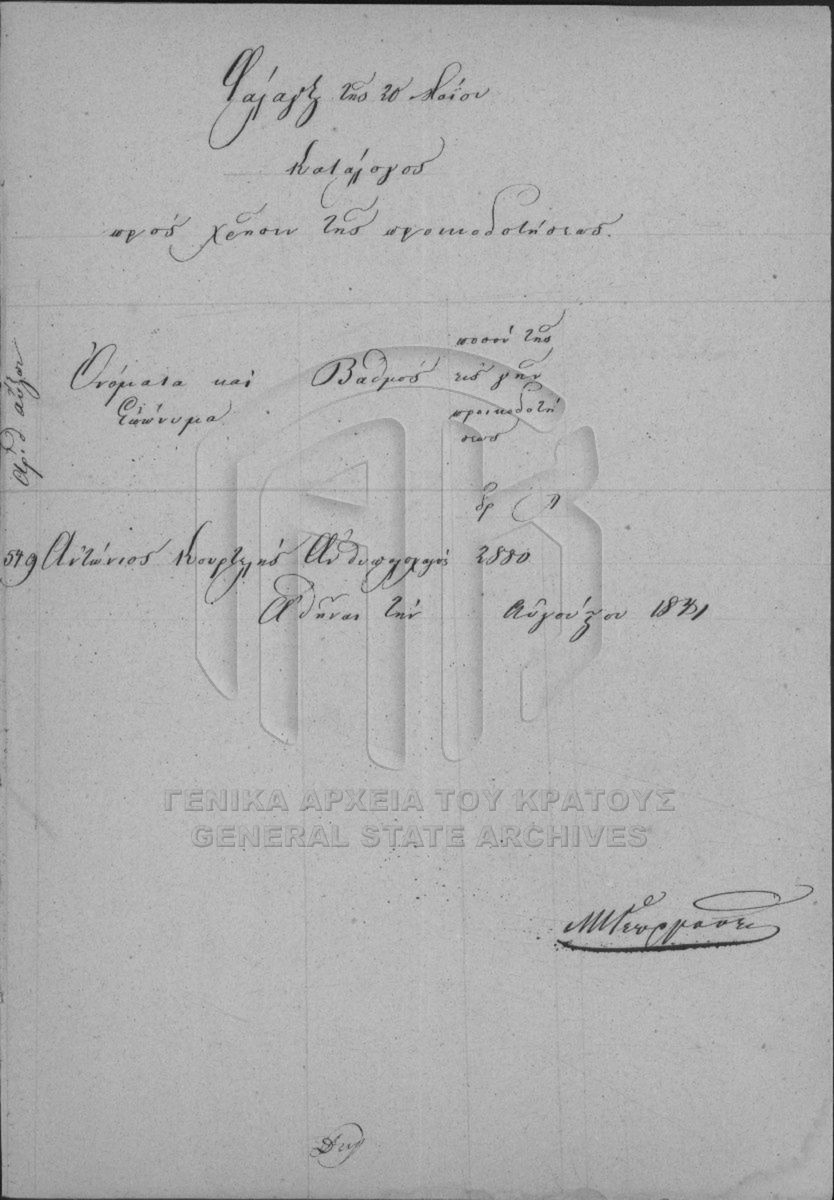 Φάλαγξ της 20 Μαΐου
Κατάλογος
προς χρήσιν της προικοδοτήσεως.
Αριθ αύξων
Ονόματα και
Επώνυμα
Βαθμός
ποσόν της
εις γην
προικοδοτή
σεως
δρ Λ
549 Αντώνιος Κουρτελής Ανθυπολοχαγός 2880
Αθήναι την Αυγούστου 18
ΓΕΝΙΚΑ ΑΡΧΕΙΑ ΤΟΥ ΚΡΑΤΟΥΣ
GENERAL STATE ARCHIVES